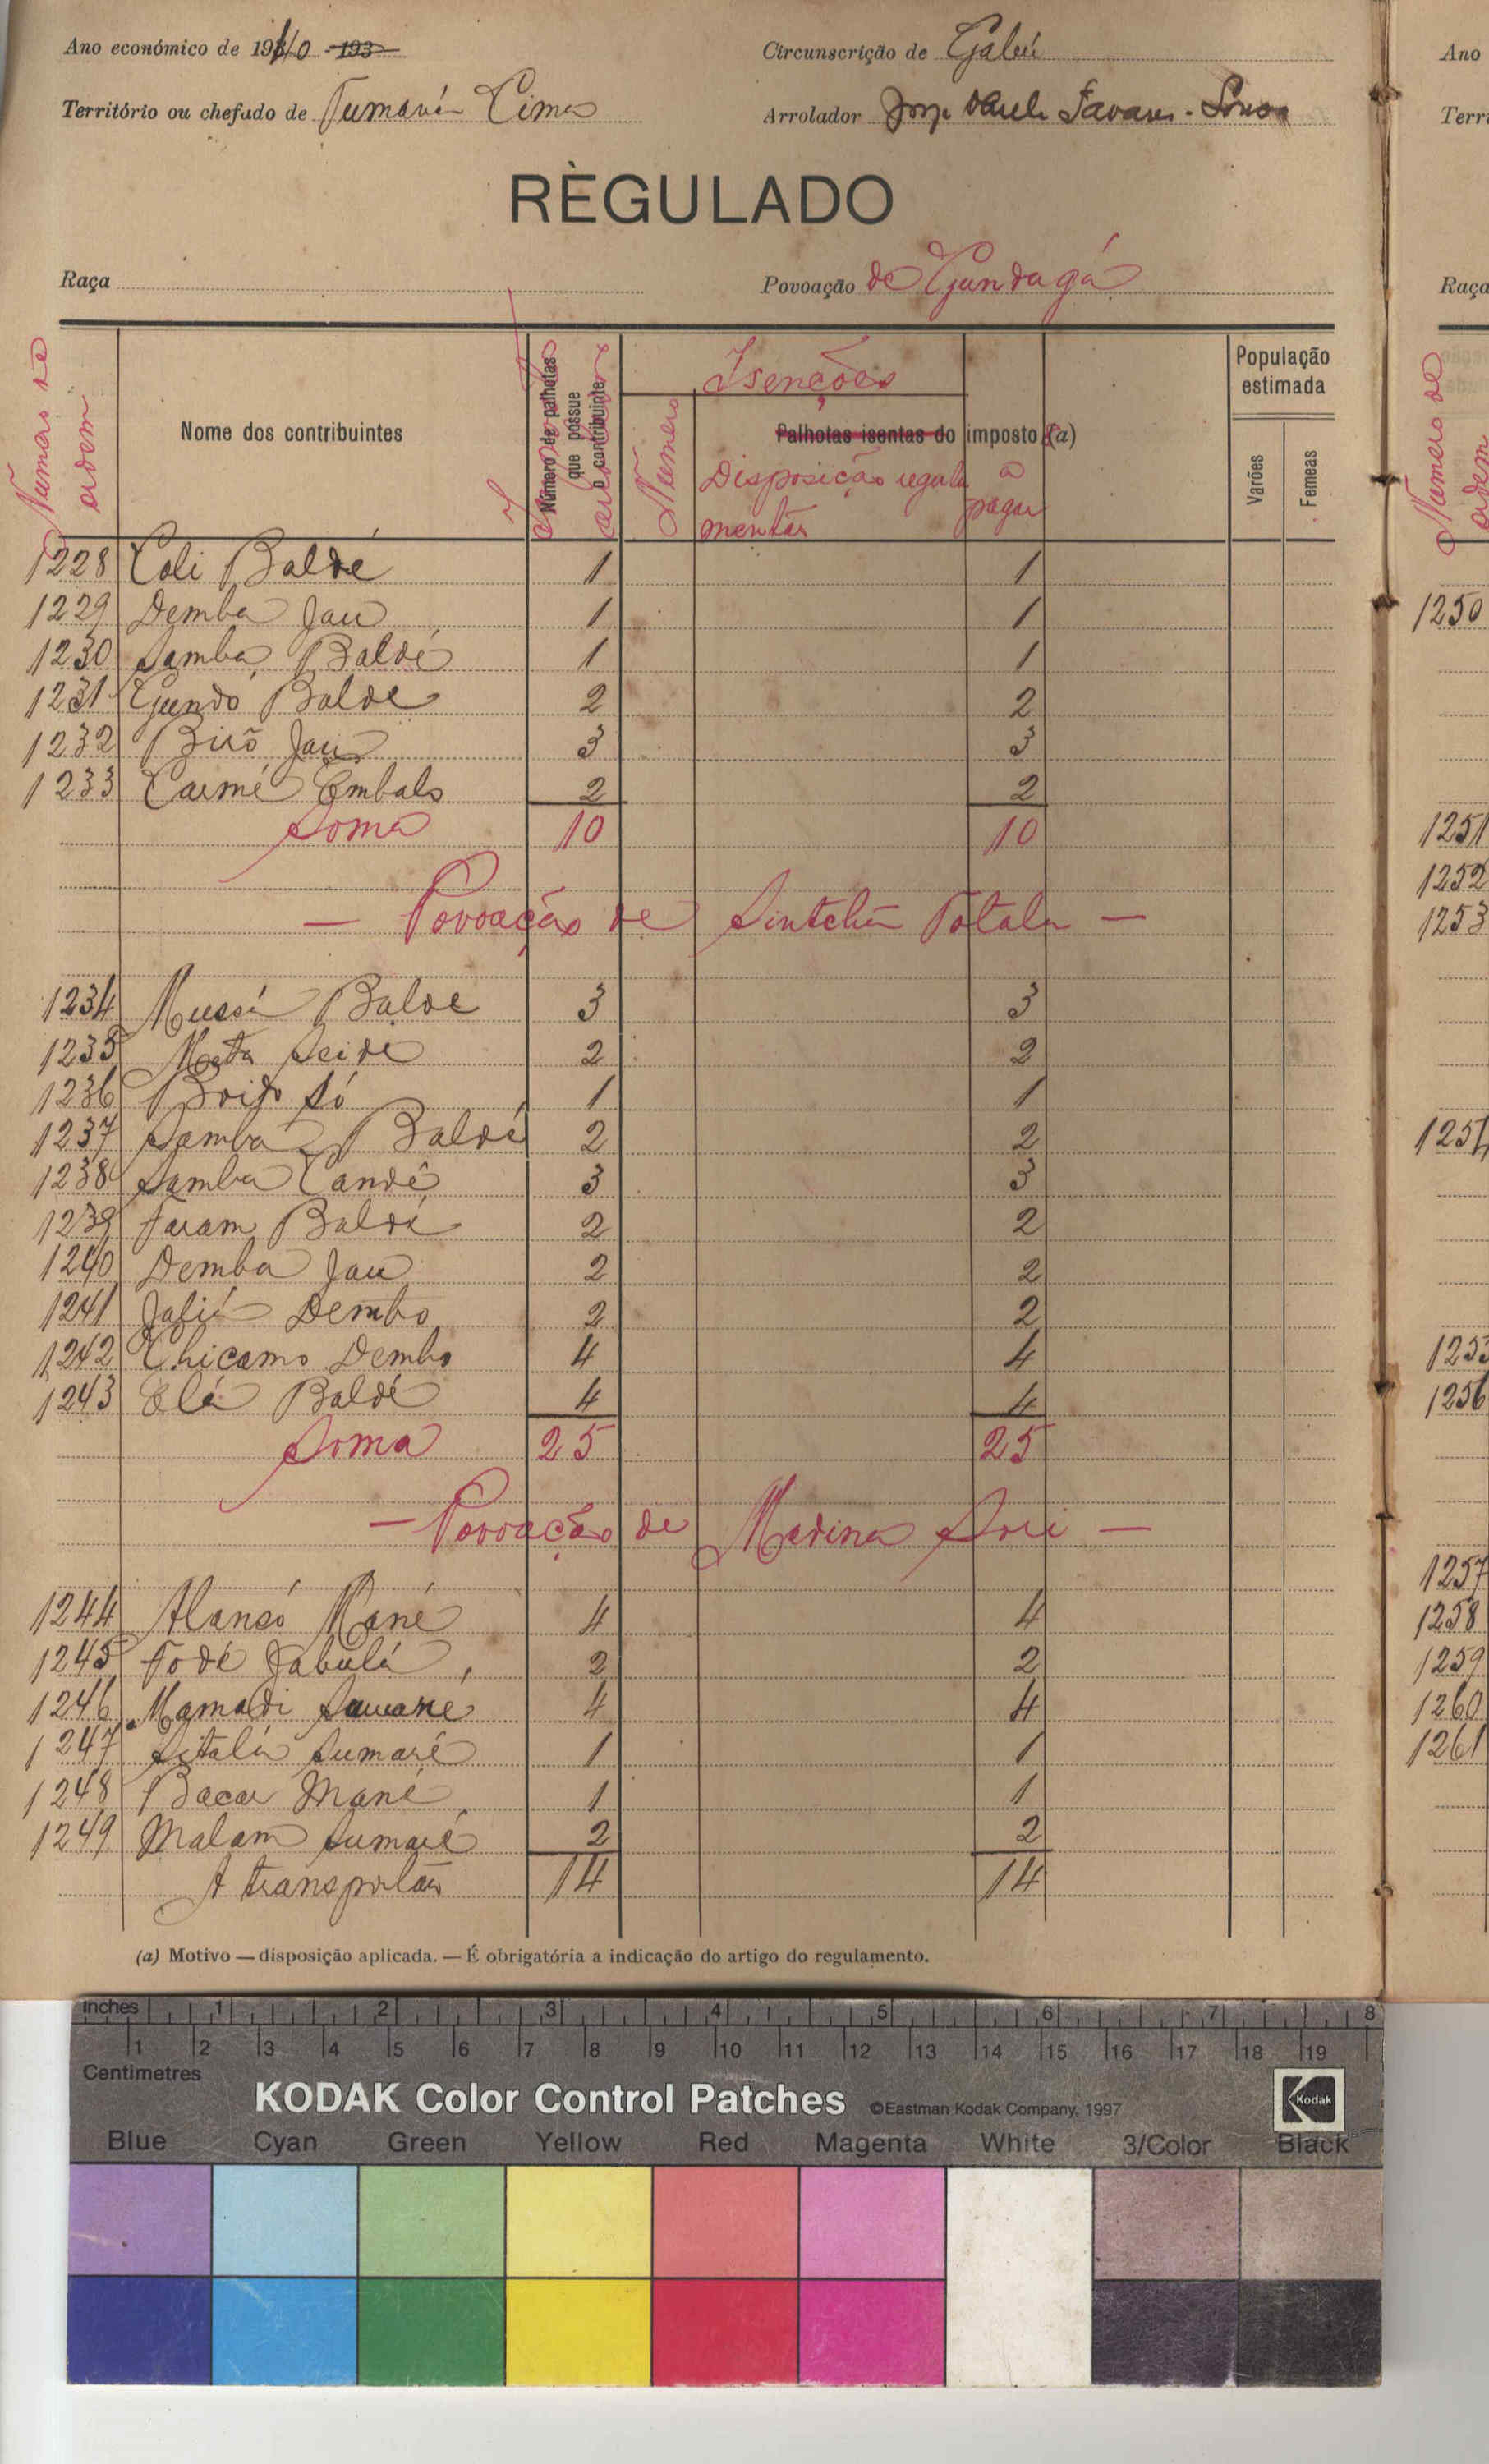 Ano económico de 1940 - 193
Circunscrição de Gabú
Território ou chefado de Tumaná Cima
Arrolador Tavares - Sousa
RÈGULADO
Raça
Povoação de Gundagá
Numero de ordem
Nome dos contribuintes
Número de palhotas que possue o contribuinte
Isenções
Numero
Palhotas isentas do imposto (a)
Disposição regulamentar
a pagar
População estimada
Varões
Femeas
1228 Coli Baldé 1 1
1229 Demba Jau 1 1
1230 Samba Baldé 1 1
1231 Gundo Balde 2 2
1232 Birô Jau 3 3
1233 Carmé Embalo 2 2
Soma 10 10
— Povoação de Sintchã Potala —
1234 Mussá Balde 3 3
1235 Mata Seide 2 2
1236 Boigo Só 1 1
1237 Samba Baldé 2 2
1238 Samba Candé 3 3
1239 Faram Baldé 2 2
1240 Demba Jau 2 2
1241 Jafiá Dembo 2 2
1242 Chicamo Dembo 4 4
1243 Elá Baldé 4 4
Soma 25 25
— Povoação de Madina Sori —
1244 Alansó Mané 4 4
1245 Fodé Jabulá 2 2
1246 Mamadi Sumané 4 4
1247 Sitalá Sumaré 1 1
1248 Bacar Mané 1 1
1249 Malam Sumaré 2 2
A transportar 14 14
(a) Motivo — disposição aplicada. — É obrigatória a indicação do artigo do regulamento.
Ano
Terri
Raça
Numero de ordem
1250
1251
1252
1253
1254
1255
1256
1257
1258
1259
1260
1261
inches 1 2 3 4 5 6 7 8
1 2 3 4 5 6 7 8 9 10 11 12 13 14 15 16 17 18 19
Centimetres
KODAK Color Control Patches ©Eastman Kodak Company, 1997
Kodak
Blue Cyan Green Yellow Red Magenta White 3/Color Black